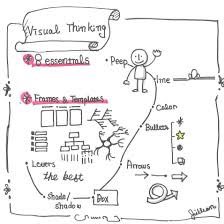 Visual Thinking
8 essentials
Peep
line
Frames & Templates
Color
Bullets
Levers
Arrows
the best
Shade/
shadow
Box